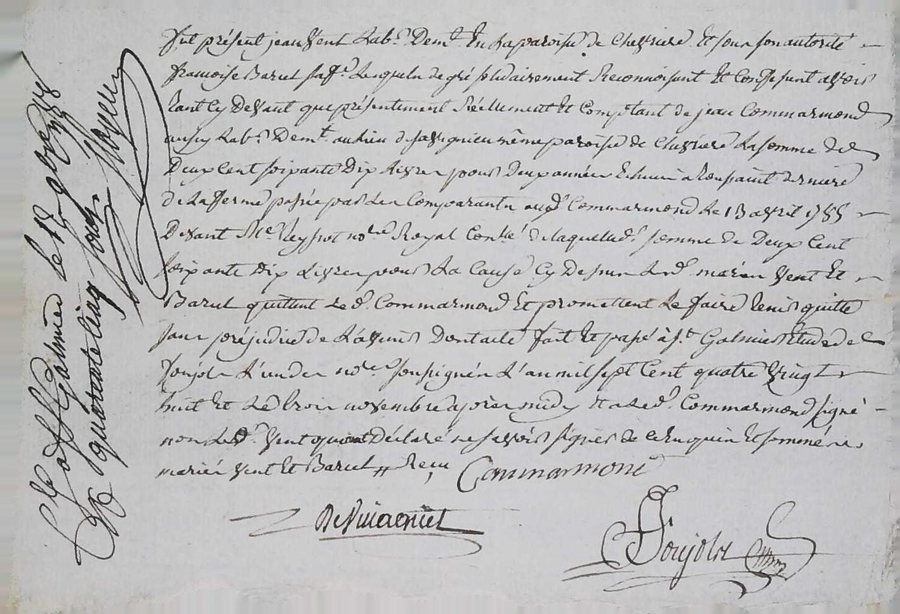 fut présent jean Vent Lab.r Dem.t En La paroisse de Chevriere Et sous son autorité
francoise Barul sa f.e Lesquels de gré solidairement Reconnoissent Et Confessent avoir
tant Cy Devant que présentement Réellement Et Comptant de jean Commarmond
aussy Lab.r Dem.t au Lieu de Savignieu même paroisse de Chevriere La somme de
Deux Cent soixante Dix Livres pour Deux années Echues a toussaint derniere
de La ferme passée par Les Comparants aud. Commarmond Le 13 avril 1788
Devant M.e Not.re Royal de Laquelle d. somme de Deux Cent
soixante Dix Livres pour La Cause Cy Dessus Les d. mariés Vent Et
Barul quittent Le d. Commarmond Et promettent Le faire tenir quitte
sans préjudice de Dont acte fait Et passé à S.t Galmier Etude de
Ponjolx L'un des no.res soussignés L'an mil sept Cent quatre Vingt
huit Et Le trois novembre après midy Et a Le d. Commarmond signé
non Le d. Vent qui ont Déclaré ne savoir signer de Ce Enquis Et sommés
mariés Vent Et Barul // Reçu Commarmond
Ponjolx
à S.t Galmier le
R quarante cinq sous